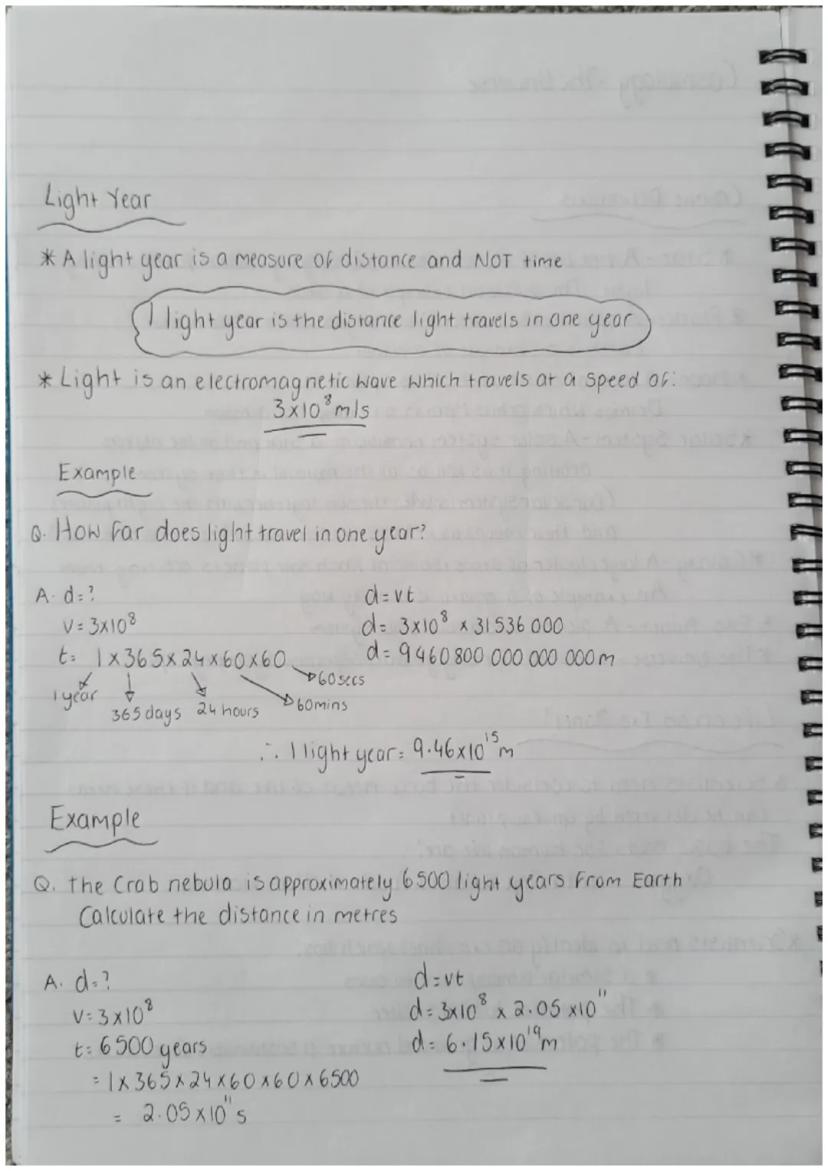 Light Year
* A light year is a measure of distance and NOT time
1 light year is the distance light travels in one year
* Light is an electromagnetic wave which travels at a speed of:
3x10⁸ m/s
Example
Q. How far does light travel in one year?
A. d=?
v=3x10⁸
t= 1x365x24x60x60
1 year
365 days
24 hours
60mins
60secs
d=vt
d= 3x10⁸ x 31536 000
d= 9460 800 000 000 000m
∴ 1 light year= 9.46x10¹⁵m
Example
Q. The Crab nebula is approximately 6500 light years from Earth
Calculate the distance in metres
A. d=?
v=3x10⁸
t= 6500 years
=1x365x24x60x60x6500
= 2.05x10¹¹s
d=vt
d= 3x10⁸ x 2.05 x10¹¹
d= 6.15x10¹⁹m